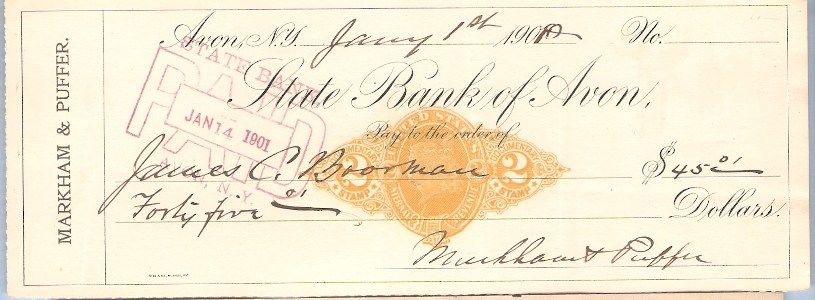 MARKHAM & PUFFER.
Avon, N.Y. Jany 1st 1901 No.
State Bank of Avon,
STATE BANK,
PAID
JAN 14 1901
AVON, N.Y.
Pay to the order of
James C. Boorman $45 01
Forty five 01 Dollars.
UNITED STATES
DOCUMENTARY DOCUMENTARY
2 2
STAMP STAMP
Markham & Puffer